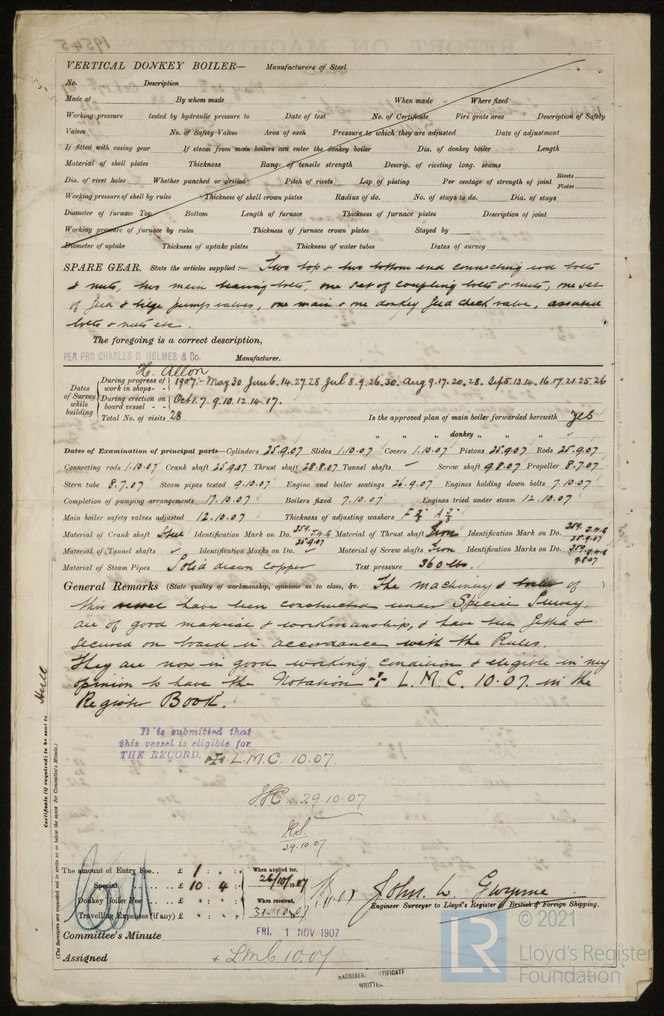 VERTICAL DONKEY BOILER— Manufacturers of Steel
No. Description
Made at By whom made When made Where fixed
Working pressure tested by hydraulic pressure to Date of test No. of Certificate Fire grate area Description of Safety
Valves No. of Safety Valves Area of each Pressure to which they are adjusted Date of adjustment
If fitted with easing gear If steam from main boilers can enter the donkey boiler Dia. of donkey boiler Length
Material of shell plates Thickness Range of tensile strength Descrip. of riveting long. seams
Dia. of rivet holes Whether punched or drilled Pitch of rivets Lap of plating Per centage of strength of joint Rivets Plates
Working pressure of shell by rules Thickness of shell crown plates Radius of do. No. of stays to do. Dia. of stays
Diameter of furnace Top Bottom Length of furnace Thickness of furnace plates Description of joint
Working pressure of furnace by rules Thickness of furnace crown plates Stayed by
Diameter of uptake Thickness of uptake plates Thickness of water tubes Dates of survey
SPARE GEAR. State the articles supplied:— Two top & two bottom end connecting rod bolts
& nuts, two main bearing bolts, one set of coupling bolts & nuts, one set
of feed & bilge pump valves, one main & one donkey feed check valve, assorted
bolts & nuts etc
The foregoing is a correct description,
PER PRO CHARLES D. HOLMES & Co. Manufacturer.
H. Allon
Dates of Survey while building
During progress of work in shops - - 1907:- May 30 Jun 6.14.27.28 Jul 8.9.26.30. Aug 9.17.20.28. Sept 5.13.14.16.17.21.25.26
During erection on board vessel - - - Oct 1.7.9.10.12.14.17.
Total No. of visits 28 Is the approved plan of main boiler forwarded herewith Yes
" " " donkey " " "
Dates of Examination of principal parts—Cylinders 25.9.07 Slides 1.10.07 Covers 1.10.07 Pistons 25.9.07 Rods 25.9.07
Connecting rods 1.10.07 Crank shaft 25.9.07 Thrust shaft 28.8.07 Tunnel shafts ✓ Screw shaft 9.8.07 Propeller 8.7.07
Stern tube 8.7.07 Steam pipes tested 9.10.07 Engine and boiler seatings 26.9.07 Engines holding down bolts 7.10.07
Completion of pumping arrangements 17.10.07 Boilers fixed 7.10.07 Engines tried under steam 12.10.07
Main boiler safety valves adjusted 12.10.07 Thickness of adjusting washers
Material of Crank shaft Steel Identification Mark on Do. 354. J.W.G 25.9.07 Material of Thrust shaft Iron Identification Mark on Do. 354. J.W.G 28.9.07
Material of Tunnel shafts ✓ Identification Marks on Do. ✓ Material of Screw shafts Iron Identification Marks on Do. 354. J.W.G 9.8.07
Material of Steam Pipes Solid drawn copper Test pressure 360 lbs.
General Remarks (State quality of workmanship, opinions as to class, &c. The machinery & boiler of
this vessel have been constructed under Special Survey,
are of good material & workmanship, & have been fitted &
secured on board in accordance with the Rules.
They are now in good working condition & eligible in my
opinion to have the Notation ✠ L.M.C. 10.07. in the
Register Book.
It is submitted that
this vessel is eligible for
THE RECORD. ✠ L.M.C. 10.07.
29.10.07
29.10.07
Certificate (if required) to be sent to Hull
(The Surveyors are requested not to write on or below the space for Committee's Minute.)
The amount of Entry Fee.. £ 1 : : When applied for,
Special .. .. £ 10 : 4 : 26/10/1907
Donkey Boiler Fee .. £ : : When received,
Travelling Expenses (if any) £ : : 31.10.07
John W Gwynne
Engineer Surveyor to Lloyd's Register of British & Foreign Shipping.
Committee's Minute FRI. 1 NOV 1907
Assigned + LMC 10.07
MACHINERY CERTIFICATE
WRITTEN.
© 2021
LR Lloyd's Register
Foundation